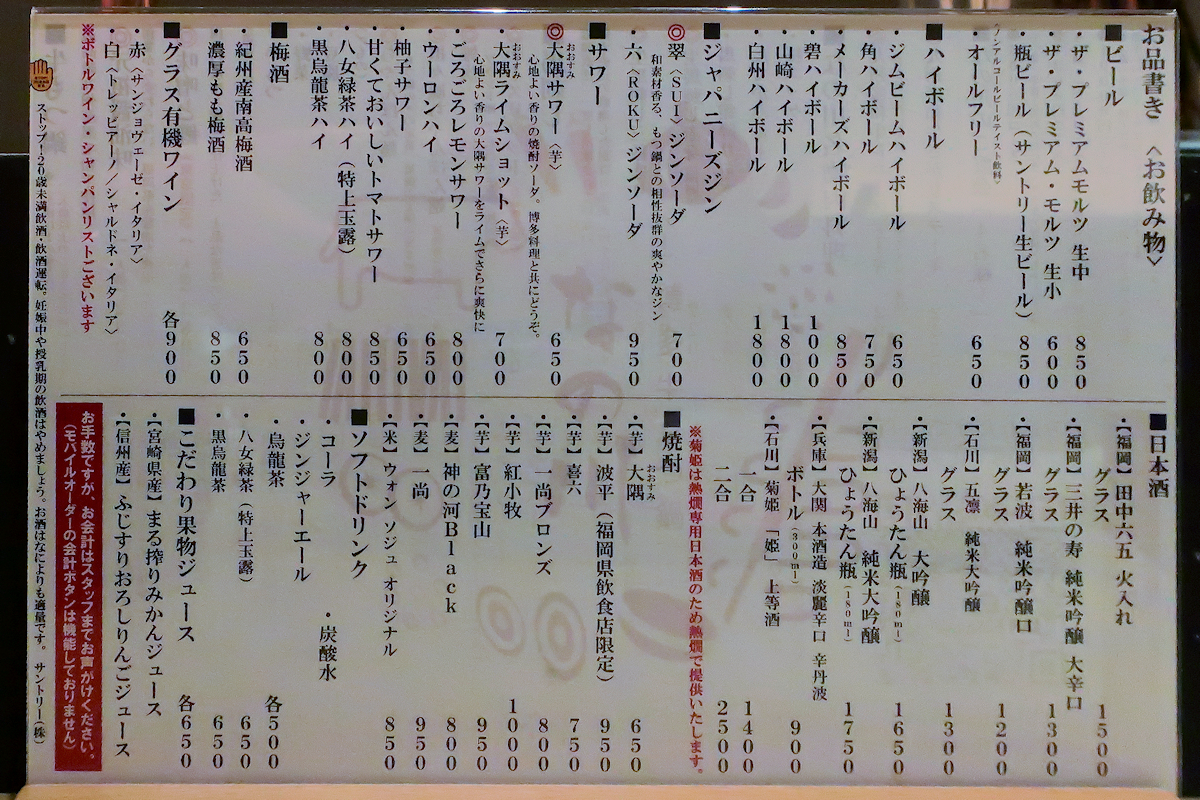 お品書き 〈お飲み物〉
■ビール
・ザ・プレミアムモルツ 生中 850
・ザ・プレミアム・モルツ 生小 600
・瓶ビール（サントリー生ビール） 850
〈ノンアルコールビールテイスト飲料〉
・オールフリー 650
■ハイボール
・ジムビームハイボール 650
・角ハイボール 750
・メーカーズハイボール 850
・碧ハイボール 1000
・山崎ハイボール 1800
・白州ハイボール 1800
■ジャパニーズジン
◎翠〈SUI〉ジンソーダ 700
和素材香る、もつ鍋との相性抜群の爽やかなジン
・六〈ROKU〉ジンソーダ 950
■サワー
◎大隅サワー〈芋〉 650
おおすみ
心地よい香りの焼酎ソーダ。博多料理と共にどうぞ。
・大隅ライムショット〈芋〉 700
おおすみ
心地よい香りの大隅サワーをライムでさらに爽快に
・ごろごろレモンサワー 800
・ウーロンハイ 650
・柚子サワー 650
・甘くておいしいトマトサワー 850
・八女緑茶ハイ（特上玉露） 800
・黒烏龍茶ハイ 800
■梅酒
・紀州産南高梅酒 650
・濃厚もも梅酒 850
■グラス有機ワイン 各900
・赤〈サンジョヴェーゼ・イタリア〉
・白〈トレッビアーノ／シャルドネ・イタリア〉
※ボトルワイン・シャンパンリストございます
ストップ！20歳未満飲酒・飲酒運転。妊娠中や授乳期の飲酒はやめましょう。お酒はなによりも適量です。 サントリー(株)
■日本酒
・【福岡】田中六五 火入れ
グラス 1500
・【福岡】三井の寿 純米吟醸 大辛口
グラス 1300
・【福岡】若波 純米吟醸
グラス 1200
・【石川】五凛 純米大吟醸
グラス 1300
・【新潟】八海山 大吟醸
ひょうたん瓶(180ml) 1650
・【新潟】八海山 純米大吟醸
ひょうたん瓶(180ml) 1750
・【兵庫】大関 本酒造 淡麗辛口 辛丹波
ボトル(300ml) 900
・【石川】菊姫 「姫」 上等酒
一合 1400
二合 2500
※菊姫は熱燗専用日本酒のため熱燗で提供いたします。
■焼酎
・【芋】大隅 650
おおすみ
・【芋】波平（福岡県飲食店限定） 950
・【芋】喜六 750
・【芋】一尚ブロンズ 800
・【芋】紅小牧 1000
・【芋】富乃宝山 950
・【麦】神の河Black 800
・【麦】一尚 950
・【米】ウォン ソジュ オリジナル 850
■ソフトドリンク
・コーラ ・炭酸水
・ジンジャーエール
・烏龍茶 各500
・八女緑茶（特上玉露） 650
・黒烏龍茶 650
■こだわり果物ジュース 各650
・【宮崎県産】まる搾りみかんジュース
・【信州産】ふじすりおろしりんごジュース
お手数ですが、お会計はスタッフまでお声がけください。
（モバイルオーダーの会計ボタンは機能しておりません）